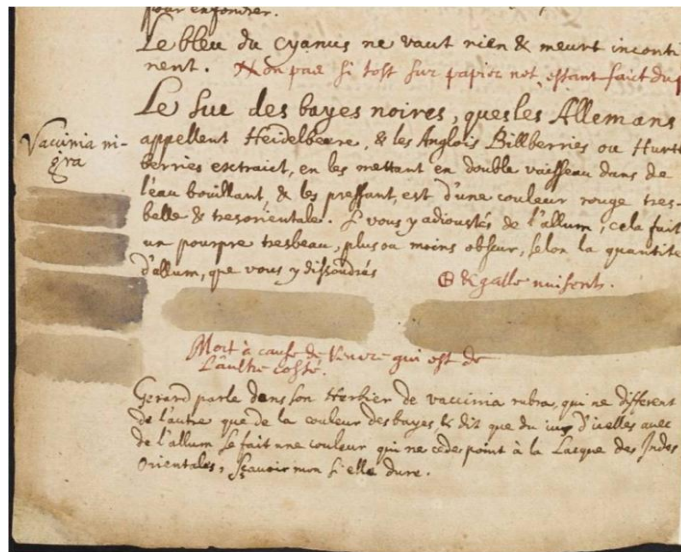 pour enfoncer.
Le bleu du cyanus ne vaut rien & meurt inconti
nent. Non pas si tost sur papier net, estant faict du
Vaccinia ni-
gra
Le suc des bayes noires, que les Allemans
appellent Heidelbeere, & les Anglois Billberries ou Hurtt
berries extraict, en les mettant en double vaisseau dans de
l'eau bouillant, & les pressant, est d'une couleur rouge tres-
belle & tresorientale. Si vous y adioustés de l'allum, cela fait
un pourpre tresbeau, plus ou moins obscur, selon la quantité
d'allum, que vous y dissoudrés
& galle nuisent.
Mort à cause de Venere qui est de
l'aultre costé.
Gerard parle dans son Herbier de vaccinia rubra, qui ne different
de l'autre que de la couleur des bayes & dit que du ius d'icelles avec
de l'allum se fait une couleur qui ne cede point à la Lacque des Indes
Orientales, sçavoir mon si elle dure.